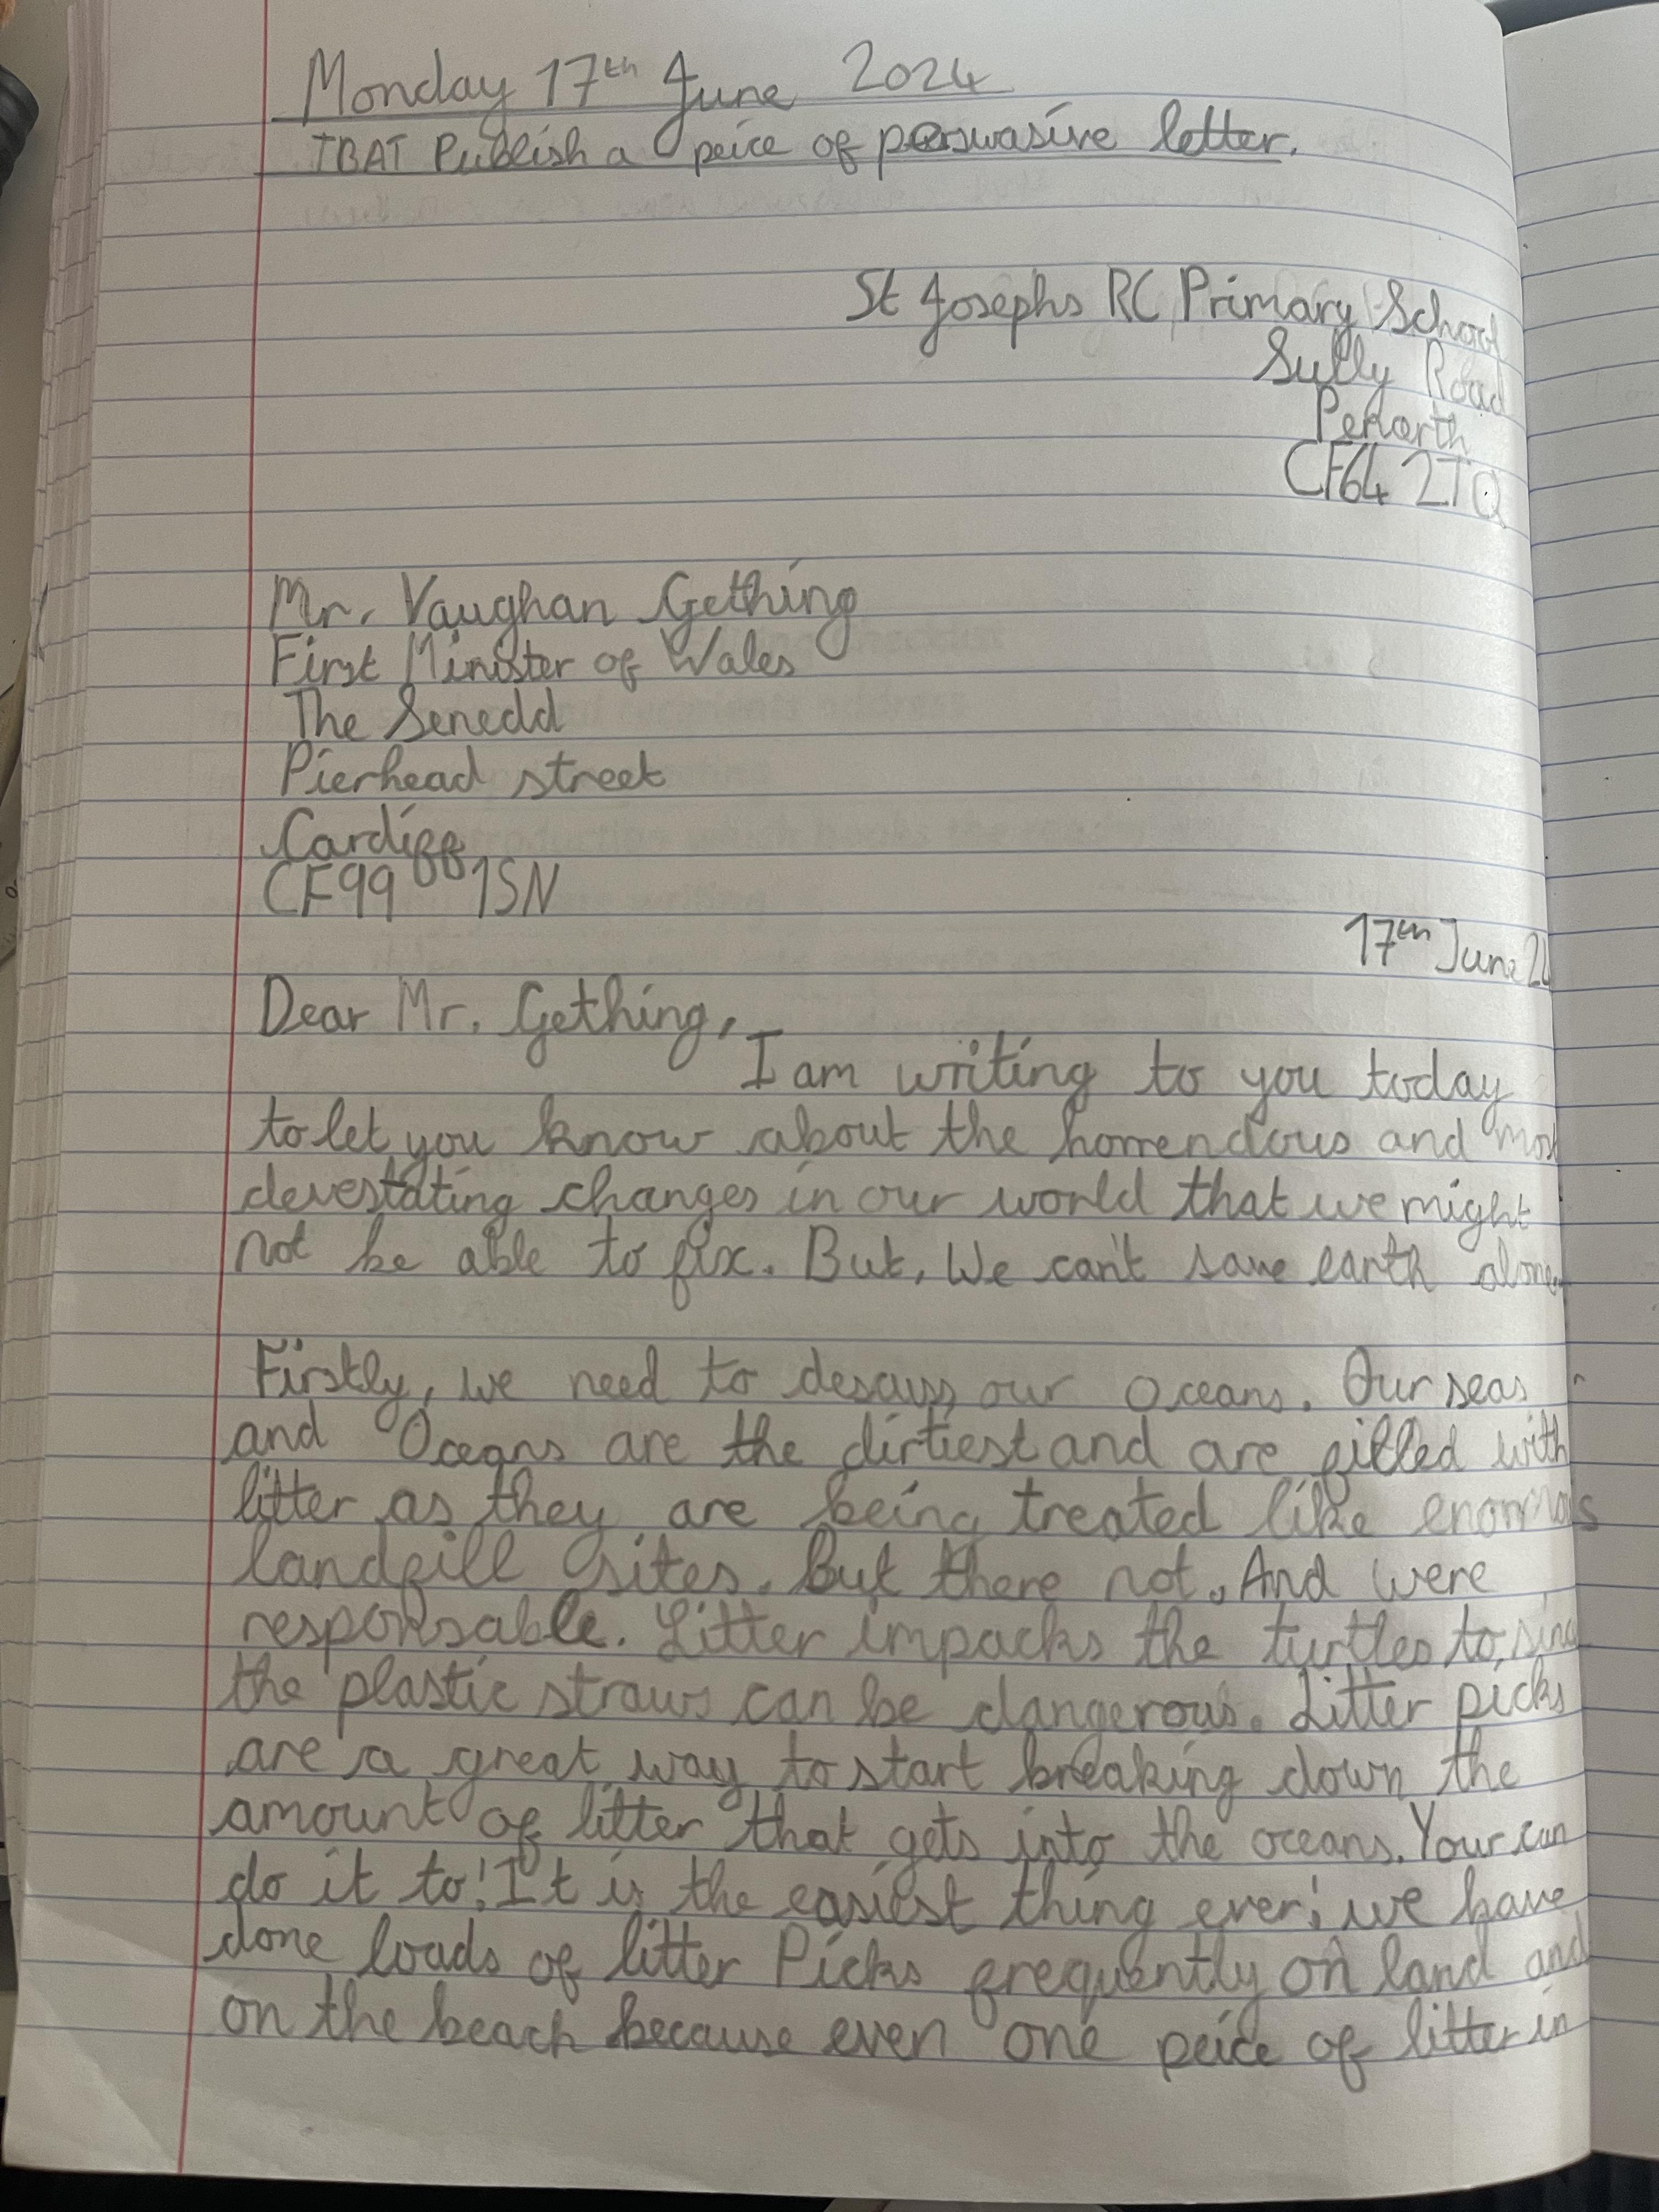 Monday 17th June 2024
TBAT Publish a peice of perswasive letter.
St Josephs RC Primary School
Sully Road
Penarth
CF64 2TQ
Mr. Vaughan Gething
First Minister of Wales
The Senedd
Pierhead street
Cardiff
CF99 1SN
17th June 24
Dear Mr. Gething,
I am writing to you today
to let you know about the horrendous and most
devestating changes in our world that we might
not be able to fix. But, We can't save earth alone.
Firstly, we need to descuss our oceans. Our seas
and Oceans are the dirtiest and are filled with
litter as they are being treated like enormous
landfill sites. But there not. And were
responsable. Litter impacks the turtles to, sinc
the plastic straws can be dangerous. Litter picks
are a great way to start breaking down the
amount of litter that gets into the oceans. Your can
do it to! It is the easiest thing ever! we have
done loads of litter Picks frequently on land and
on the beach because even one peice of litter in